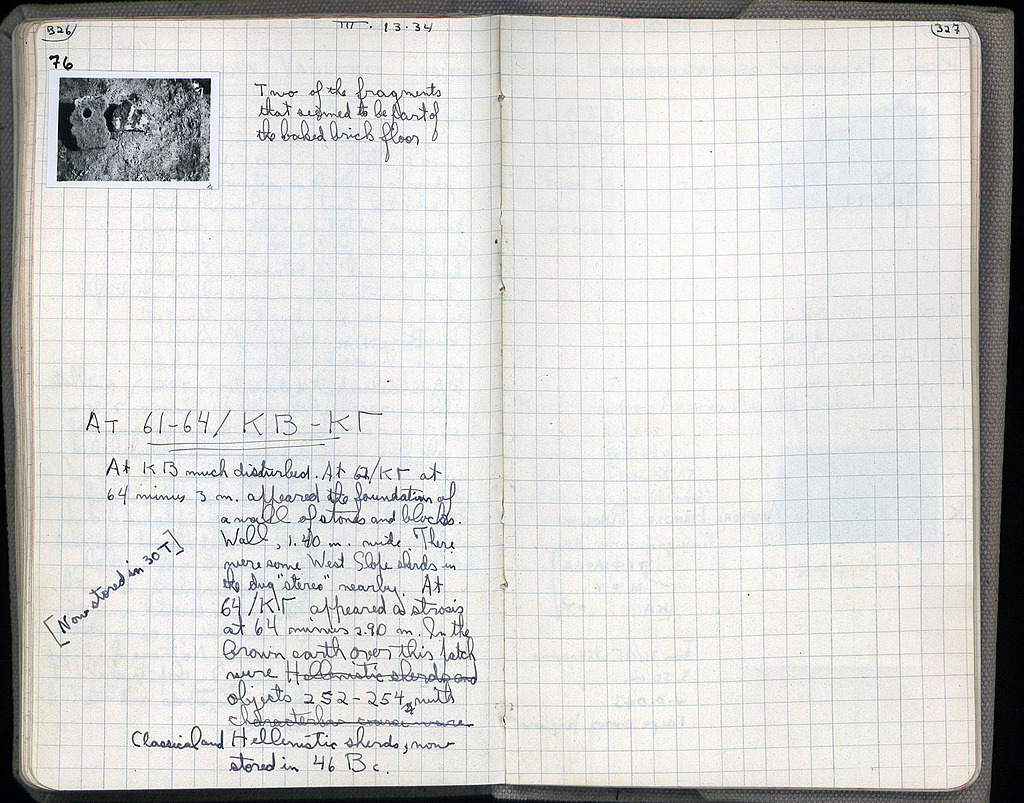 326
III.13.34
327
76
Two of the fragments
that seemed to be part of
the baked brick floor
AT 61-64/KB-KΓ
At KB much disturbed. At 62/KΓ at
64 minus 3 m. appeared the foundation of
a wall of stones and blocks.
Wall, 1.40 m. wide. There
were some West Slope sherds in
the dug "stereo" nearby. At
64/KΓ appeared a strosis
at 64 minus 2.90 m. In the
brown earth over this patch
were Hellenistic sherds and
objects 252-254, with
characterless coarse ware
Classical and Hellenistic sherds, now
stored in 46 B c.
[Now stored in 30 T]